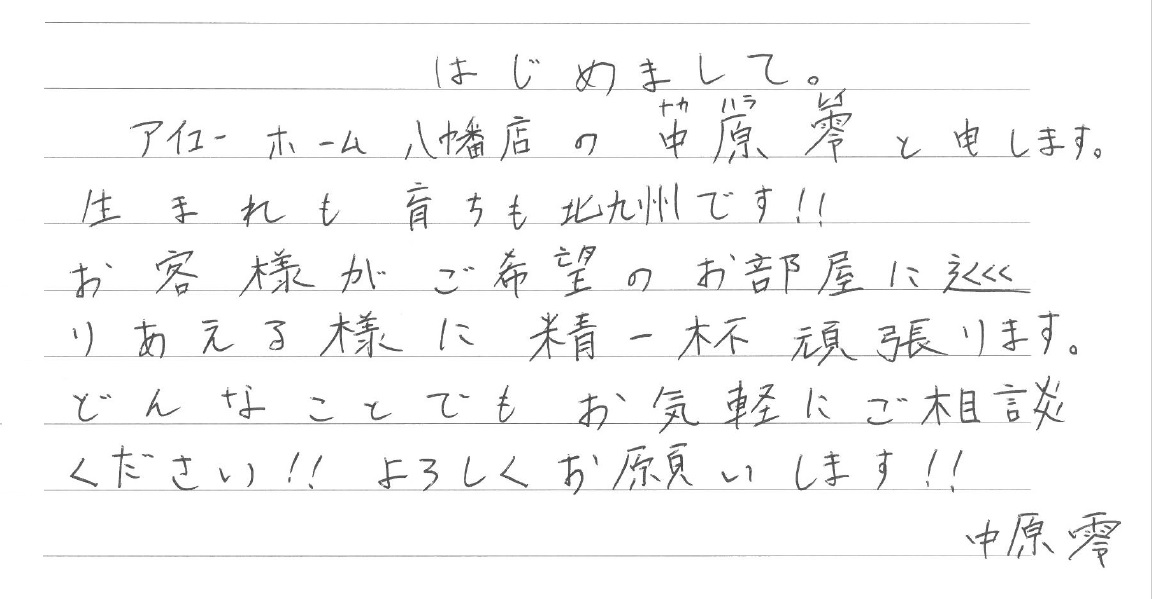 はじめまして。
ナカ ハラ レイ
アイユーホーム八幡店の中原零と申します。
生まれも育ちも北九州です!!
お客様がご希望のお部屋に巡
りあえる様に精一杯頑張ります。
どんなことでもお気軽にご相談
ください!! よろしくお願いします!!
中原零